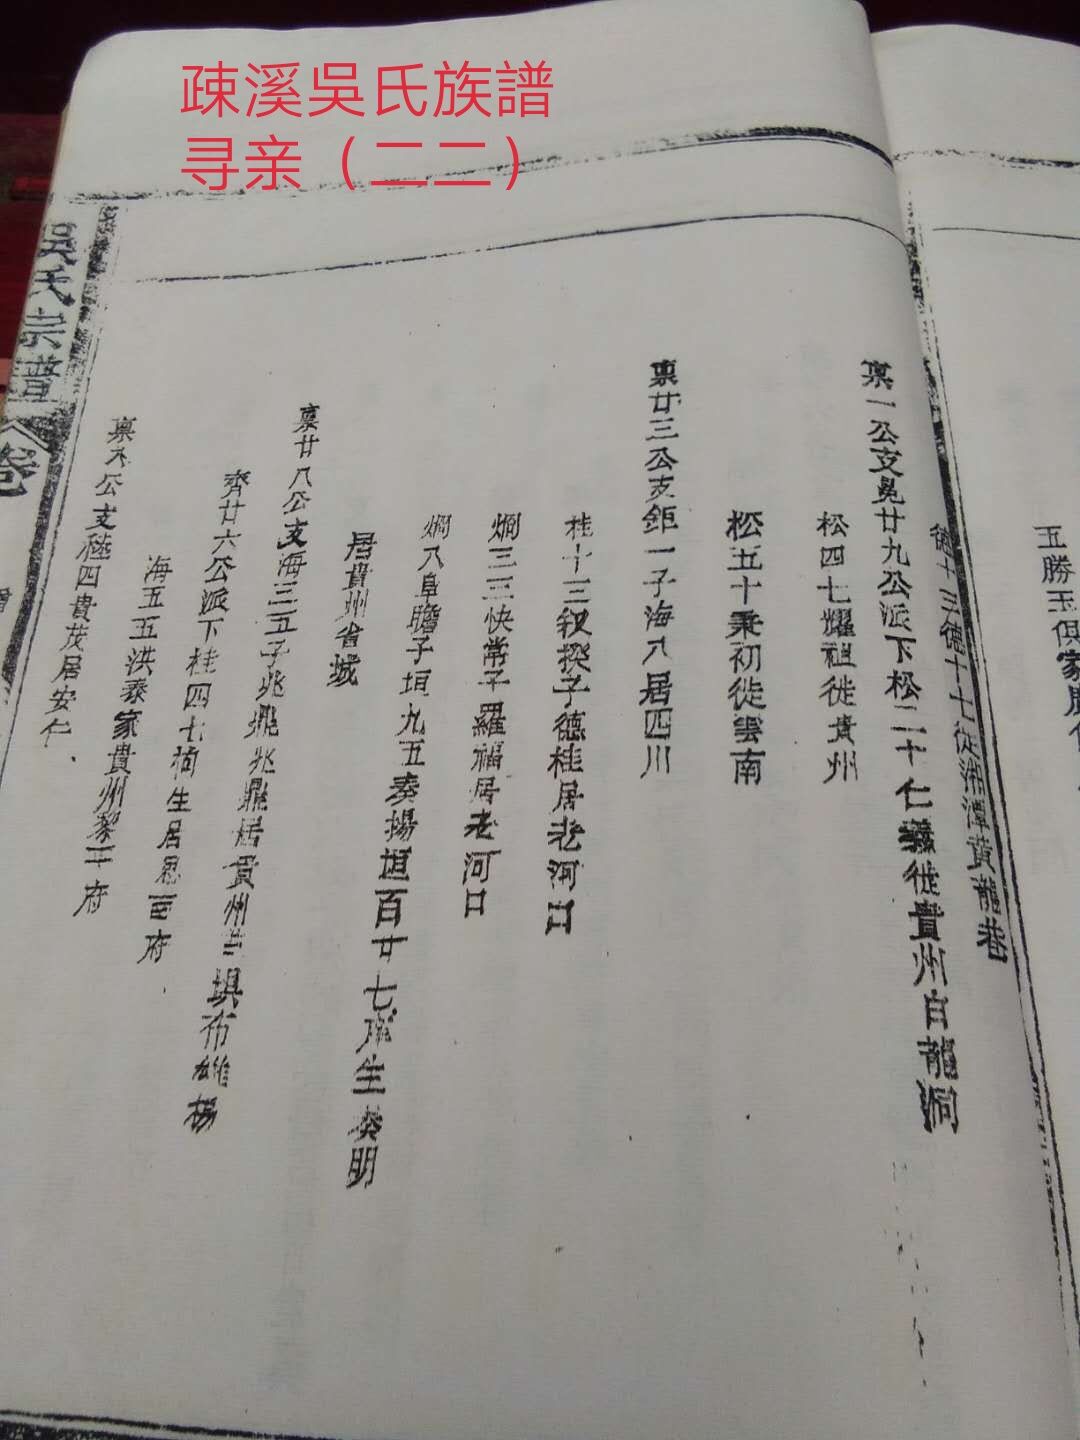 疎溪吳氏族譜
寻亲（二二）
玉勝玉俱家居
德十三德十七徙湘潭黃龍巷
禀一公支晃廿九公派下松二十仁義徙貴州白龍洞
松四七耀祖徙貴州
松五十秉初徙雲南
禀廿三公支鉅一子海八居四川
桂十三釵揆子德桂居老河口
烱三三快常子羅福居老河口
烱八阜瞻子垣九五奏揚垣百廿七庠生葵明
居貴州省城
禀廿八公支海三五子兆鼎兆鼎居貴州
填布雄楊
齊廿六公派下桂四七栒生居思
府
海五五洪泰家貴州黎平府
禀公支桂四貴茂居安仁
吳氏宗譜
卷